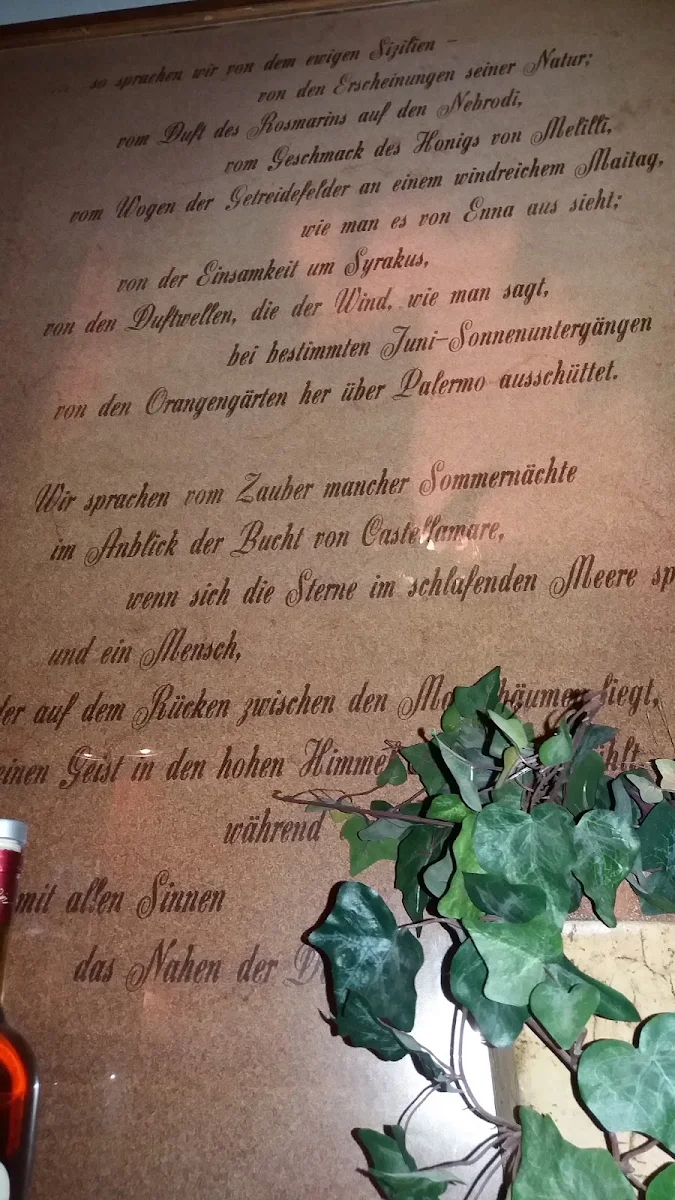 ... so sprachen wir von dem ewigen Sizilien –
von den Erscheinungen seiner Natur;
vom Duft des Rosmarins auf den Nebrodi,
vom Geschmack des Honigs von Melilli,
vom Wogen der Getreidefelder an einem windreichem Maitag,
wie man es von Enna aus sieht;
von der Einsamkeit um Syrakus,
von den Duftwellen, die der Wind, wie man sagt,
bei bestimmten Juni-Sonnenuntergängen
von den Orangengärten her über Palermo ausschüttet.
Wir sprachen vom Zauber mancher Sommernächte
im Anblick der Bucht von Castellamare,
wenn sich die Sterne im schlafenden Meere sp
und ein Mensch,
der auf dem Rücken zwischen den liegt,
einen Geist in den hohen
während
mit allen Sinnen
das Nahen der